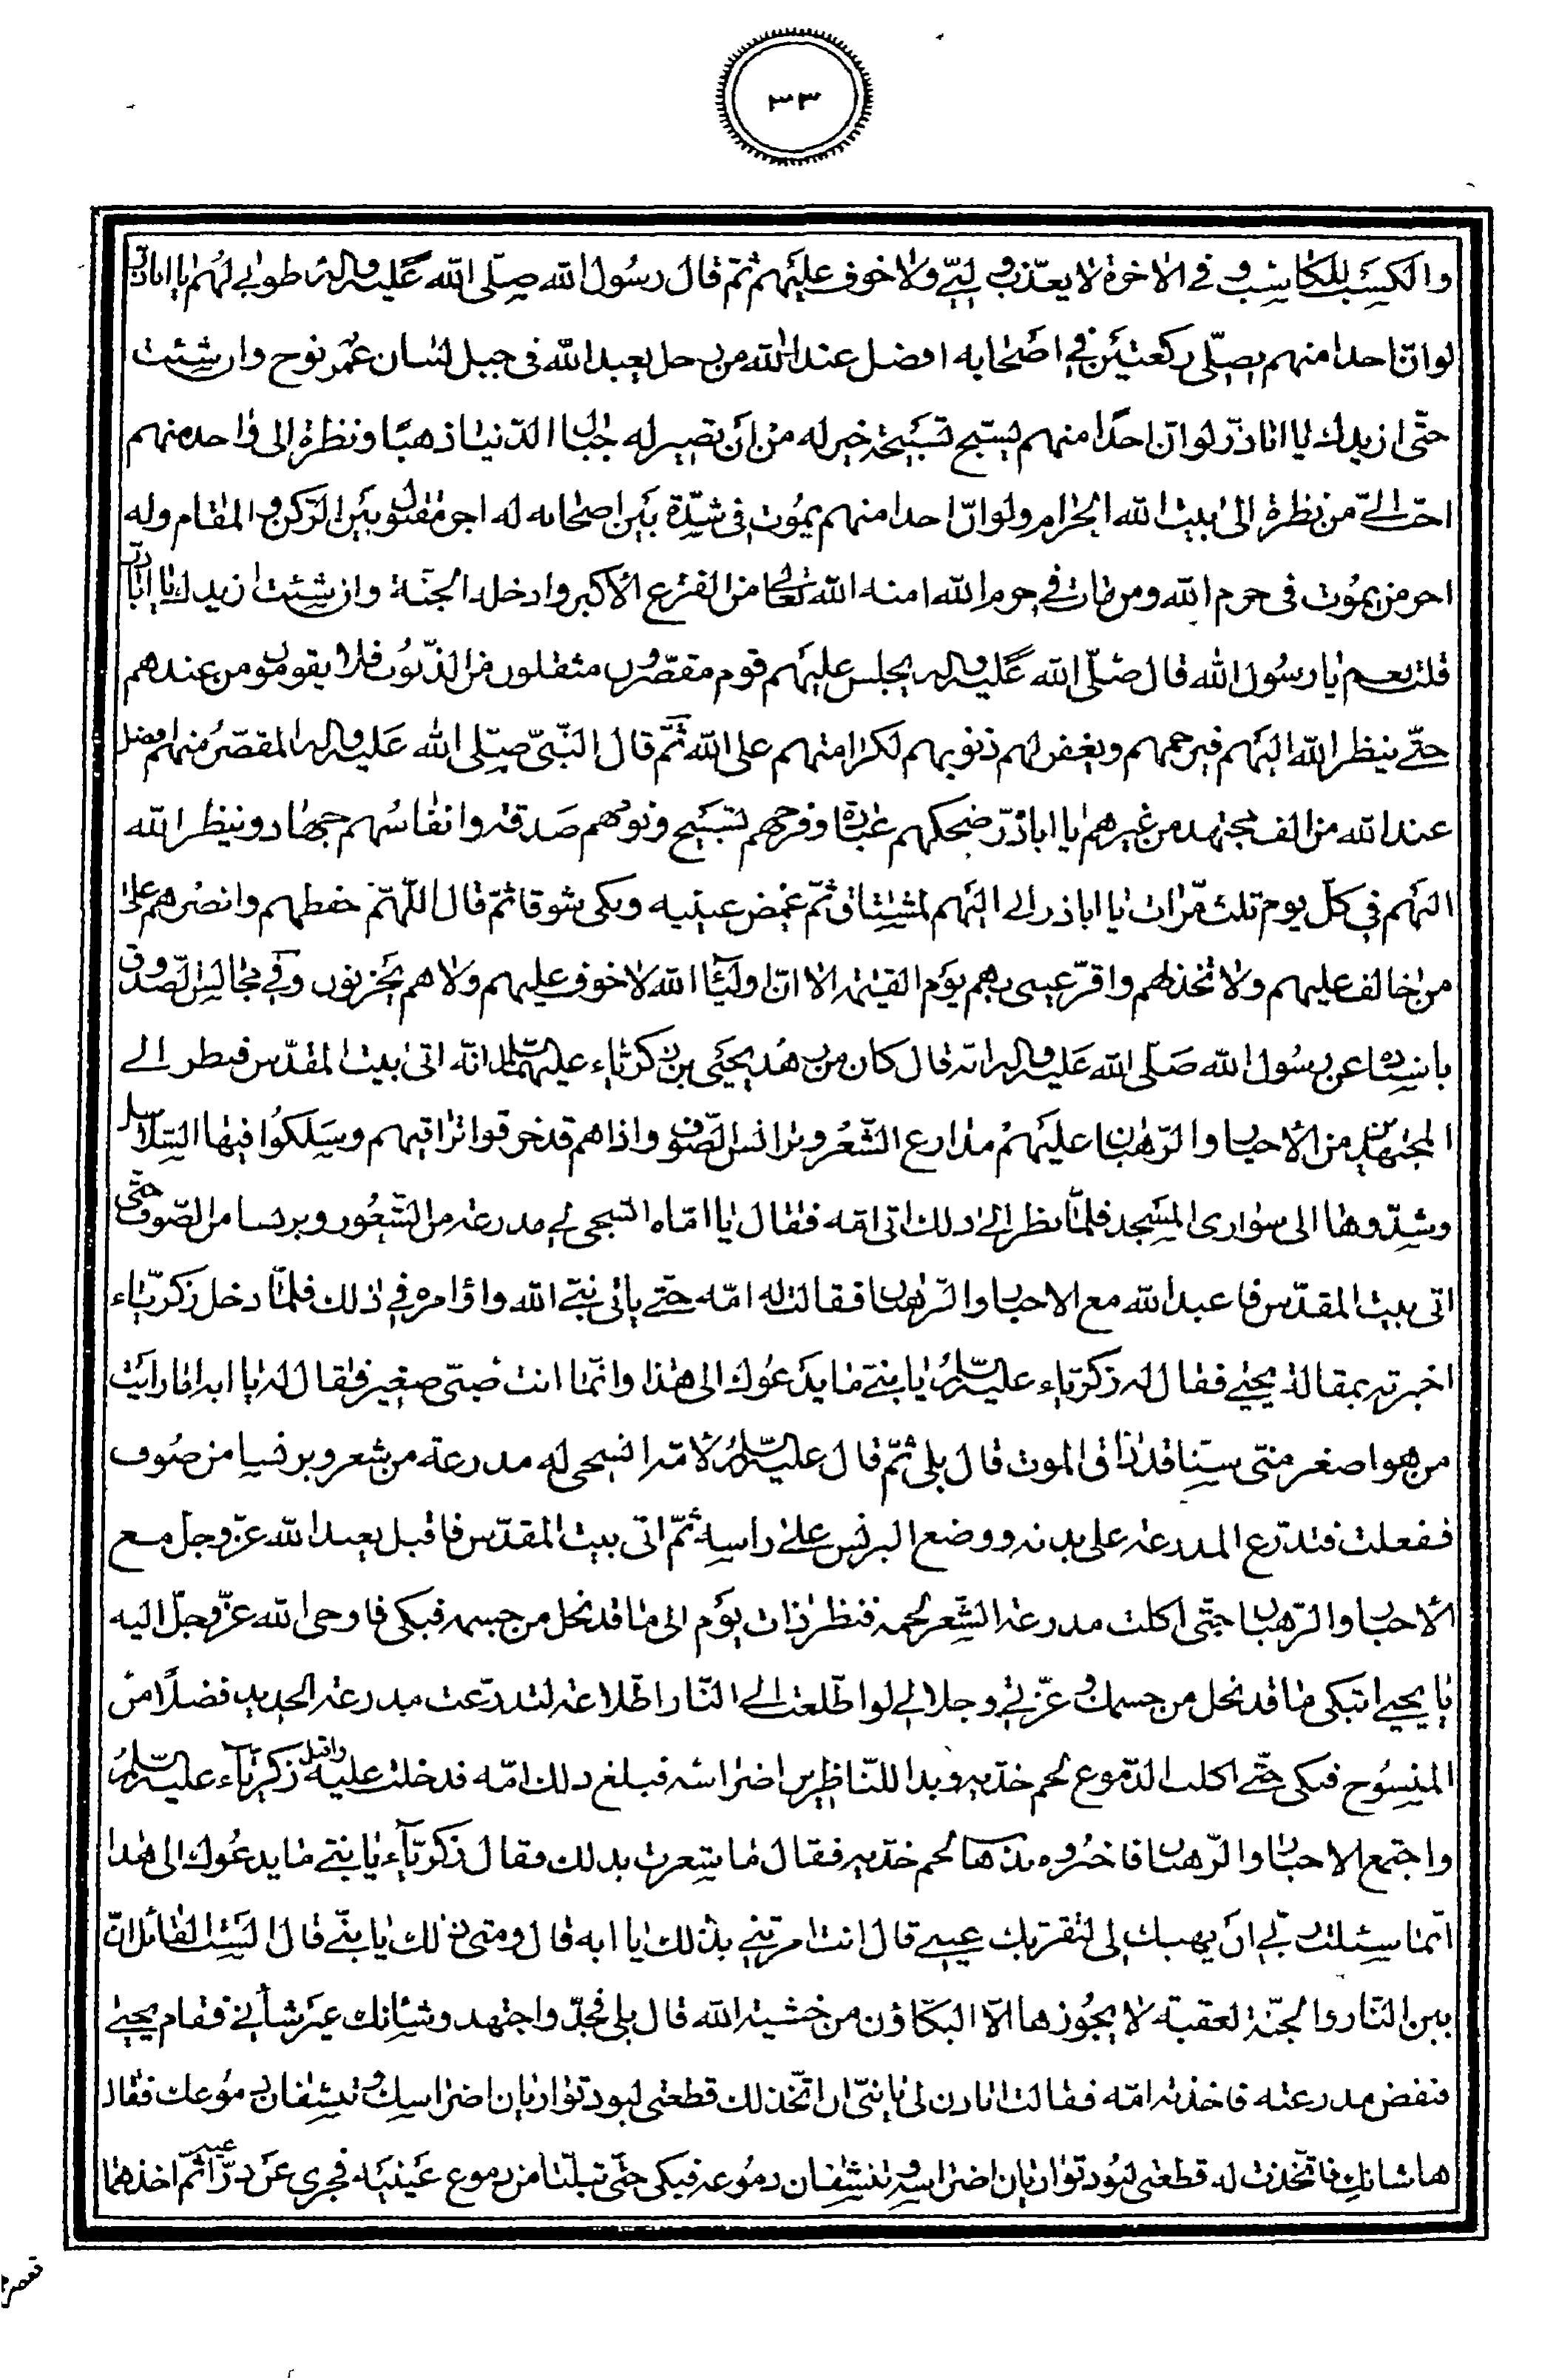 ٣٣
والكسب للكاسب وفى الاخرة لا يعذب ربى ولا خوف عليهم ثم قال رسول الله صلى الله عليه واله طوبى لهم يا اباذر
لو ان احدا منهم يصلى ركعتين فى اصحابه افضل عند الله من رجل يعبد الله فى جبل لبنان عمر نوح وان شئت
حتى ازيدك يا اباذر لو ان احدا منهم يسبح تسبيحة خير له من ان تصير له جبال الدنيا ذهبا ونظرة الى واحد منهم
احب الى من نظرة الى بيت الله الحرام ولو ان احدا منهم يموت فى شدة بين اصحابه له اجر مقتول بين الركن والمقام وله
اجر من يموت فى حرم الله ومن مات فى حرم الله امنه الله تعالى من الفزع الاكبر وادخله الجنة وان شئت ازيدك يا اباذر
قلت نعم يا رسول الله قال صلى الله عليه واله يجلس عليهم قوم مقصرون مثقلون من الذنوب فلا يقومون من عندهم
حتى ينظر الله اليهم فيرحمهم ويغفر لهم ذنوبهم لكرامتهم على الله ثم قال النبى صلى الله عليه واله المقصر منهم افضل
عند الله من الف مجتهد من غيرهم يا اباذر ضحكهم عبادة وفرحهم تسبيح ونومهم صدقة وانفاسهم جهاد وينظر الله
اليهم فى كل يوم ثلث مرات يا اباذر الى اليهم لمشتاق ثم غمض عينيه وبكى شوقا ثم قال اللهم احفظهم وانصرهم على
من خالف عليهم ولا تخذلهم واقر عينى بهم يوم القيمة الا ان اولياء الله لا خوف عليهم ولا هم يحزنون وفى مجالس الصدوق
باسناده عن رسول الله صلى الله عليه واله انه قال كان من زهد يحيى بن زكرياء عليهما السلام انه اتى بيت المقدس فنظر الى
المجتهدين من الاحبار والرهبان عليهم مدارع الشعر وبرانس الصوف واذاهم قد خرقوا تراقيهم وسلكوا فيها السلاسل
وشدوها الى سوارى المسجد فلما نظر الى ذلك اتى امه فقال يا اماه انسجى لى مدرعة من الشعور وبرنسا من الصوف حتى
اتى بيت المقدس فاعبد الله مع الاحبار والرهبان فقالت له امه حتى ياتى نبى الله واؤامره فى ذلك فلما دخل زكرياء
اخبرته بمقالة يحيى فقال له زكرياء عليه السلام يا بنى ما يدعوك الى هذا وانما انت صبى صغير فقال له يا ابه اما رايت
من هو اصغر منى سنا قد ذاق الموت قال بلى ثم قال عليه السلام لامه انسجى له مدرعة من شعر وبرنسا من صوف
ففعلت فتدرع المدرعة على بدنه ووضع البرنس على راسه ثم اتى بيت المقدس فاقبل يعبد الله عز وجل مع
الاحبار والرهبان حتى اكلت مدرعة الشعر لحمه فنظر ذات يوم الى ما قد نحل من جسمه فبكى فاوحى الله عز وجل اليه
يا يحيى اتبكى ما قد نحل من جسمك وعزتى وجلالى لو اطلعت الى النار اطلاعة لتدرعت مدرعة الحديد فضلا من
المنسوح فبكى حتى اكلت الدموع لحم خديه وبدا للناظرين اضراسه فبلغ ذلك امه فدخلت عليه واقبل زكرياء عليه السلام
واجتمع الاحبار والرهبان فاخبروه بذهاب لحم خديه فقال ما شعرت بذلك فقال زكرياء يا بنى ما يدعوك الى هذا
انما سئلت ربى ان يهبك لى لتقر بك عينى قال انت امرتنى بذلك يا ابه قال ومتى ذلك يا بنى قال الست القائل ان
بين النار والجنة لعقبة لا يجوزها الا البكاؤن من خشية الله قال بلى فجد واجتهد وشانك غير شأنى فقام يحيى
فنفض مدرعته فاخذته امه فقالت اتاذن لى يا بنى ان اتخذ لك قطعتى لبود تواريان اضراسك وتنشفان دموعك فقال
لها شانك فاتخذت له قطعتى لبود تواريان اضراسه وتنشفان دموعه فبكى حتى ابتلتا من دموع عينيه فجرى عن ذراعيه ثم اخذهما
فعصرهما